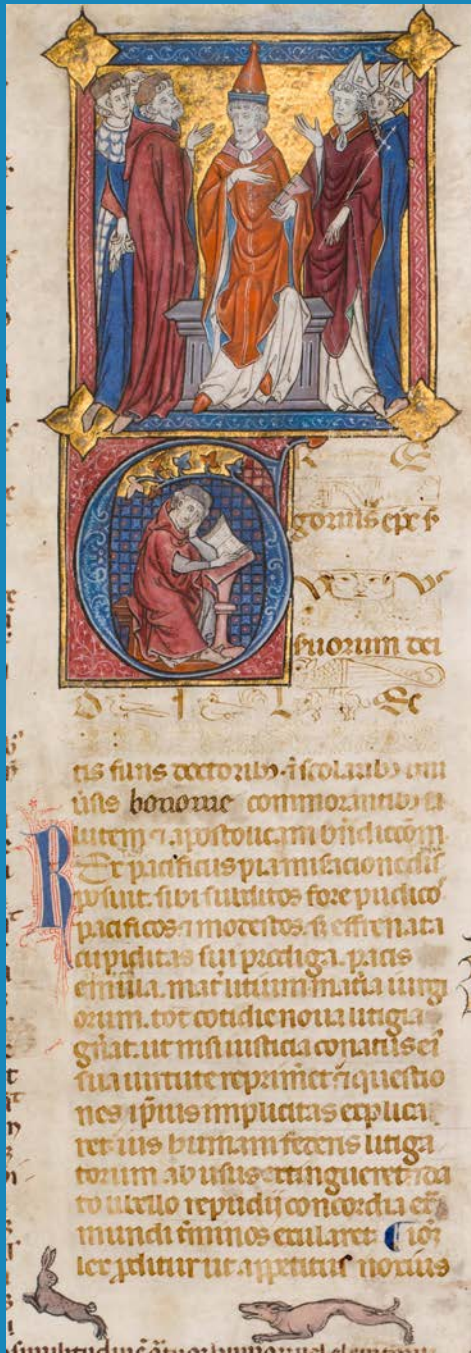 G R E
gorius ep̄c s̄
V V S
suorum dei
D I L Ec
tis filiis doctorib; ⁊ scolarib; uni
ūsis bononie commorantib; sa
lutem ⁊ apostolicam bn̄dictōm.
Rex pacificus pia miseracione dis
posuit. sibi subditos fore pudico
pacificos ⁊ modestos. sꝫ effrenata
cupiditas sui prodiga. pacis
emula. mat̄ litium mat̄ia iurgi
orum. tot cotidie noua litigia
gn̄at. ut nisi iusticia conatus ei
sua uirtute reprim̄et ⁊ questio
nes ip̄ius implicitas explica
ret ius humani federis litiga
torum abusus extingueret ⁊ da
to libello repudij concordia ex̄
mundi t̄minos exularet ¶ Ioꝫ
lex ꝓditur ut appetitus noxius